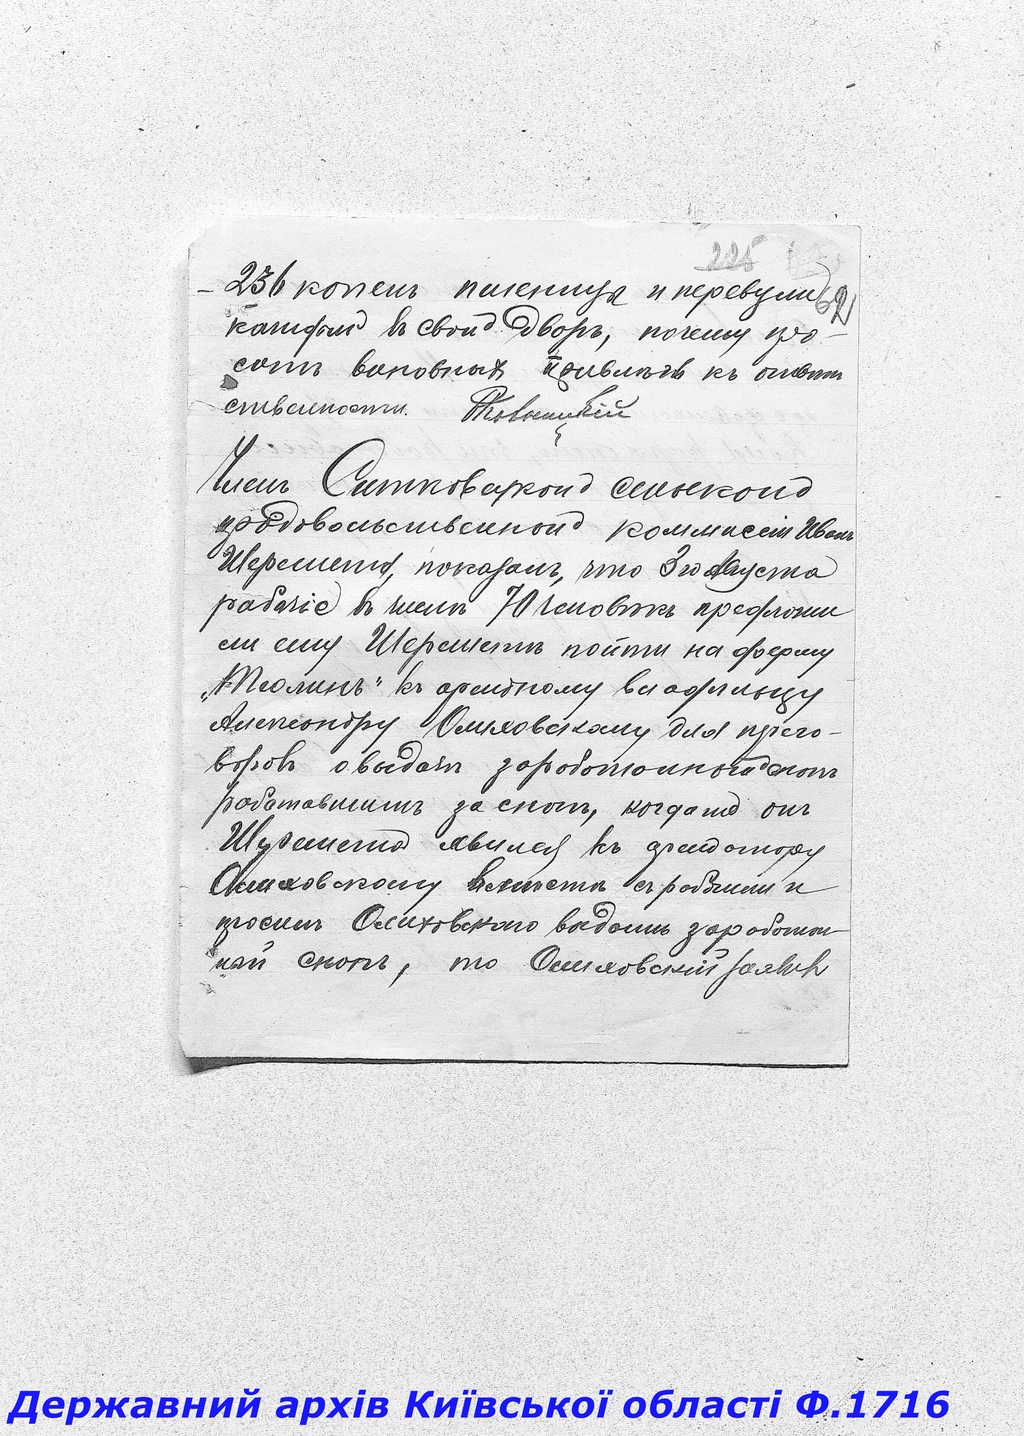 225
62
236 копенъ пшеницы и перевезли
каждый въ свой дворъ, почему про-
сятъ виновныхъ привлечь къ ответ
ственности.
Членъ Ситковецкой сельской
продовольственной коммисіи Иванъ
Шереметъ, показалъ, что 3го Августа
рабочіе въ числѣ 70 человѣкъ предложи
ли ему Шеремету пойти на ферму
къ арендному владѣльцу
Александру Олиховскому для перего-
воровъ о выдачѣ заработанный снопъ
работавшимъ за снопъ, когда
Шереметъ явился къ арендатору
Олиховскому вместе съ рабочими и
просилъ Олиховского выдать заработан-
ный снопъ, то Олиховскій заявилъ
Державний архів Київської області Ф.1716